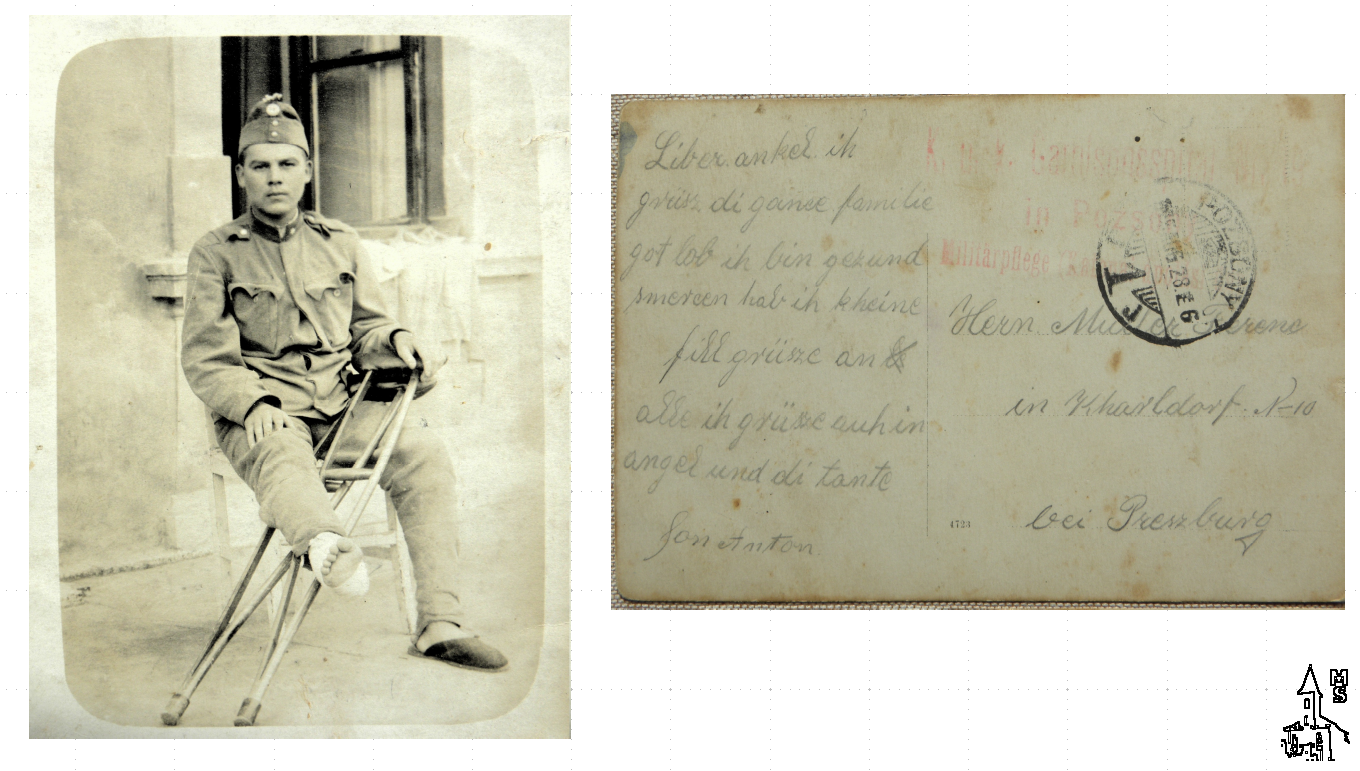 Liber ankel ih
grüsz di gance familie
got lob ih bin gezund
smercen hab ih kheine
fill grüsze an
alle ih grüsze auh in
angel und di tante
fon Anton
K. u. k.
in Pozsony
Militärpflege
POZSONY
28 6
1
Hern
in Kharldorf. N-10
bei Preszburg
4723
MS